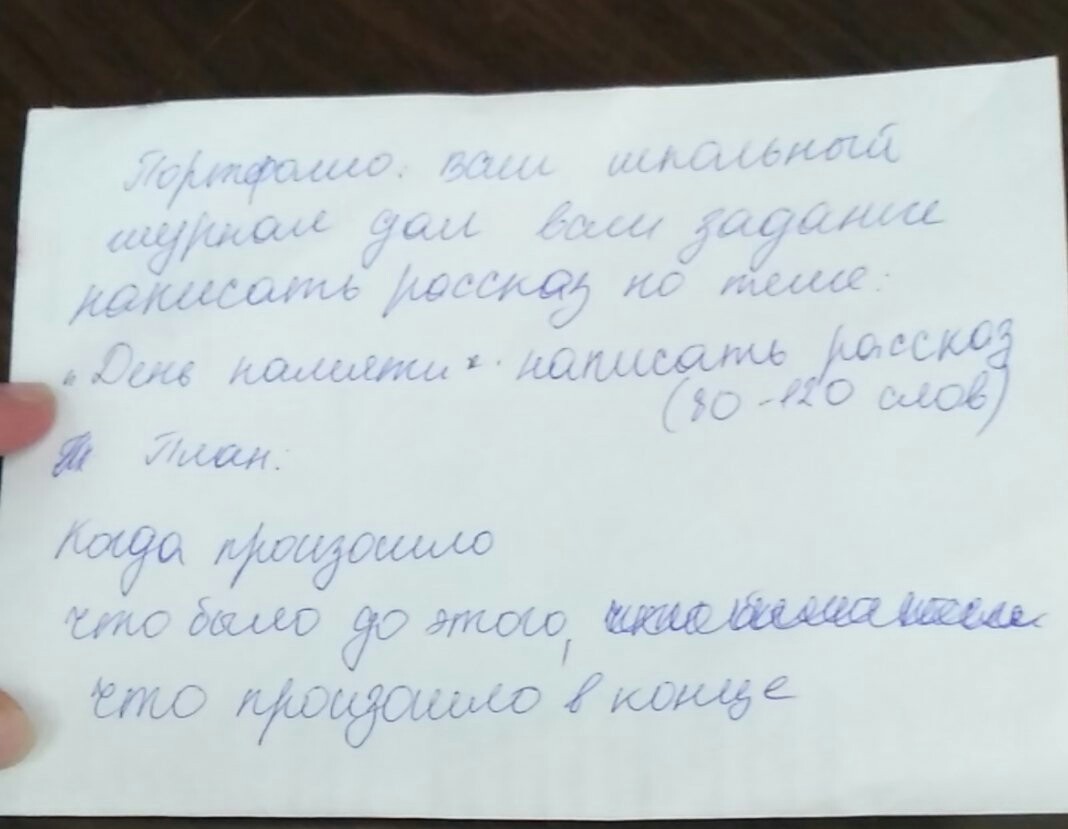 Портфолио: Ваш школьный
журнал дал вам задание
написать рассказ по теме:
"День памяти". написать рассказ
(80-120 слов)
План:
Когда произошло
что было до этого,
что произошло в конце